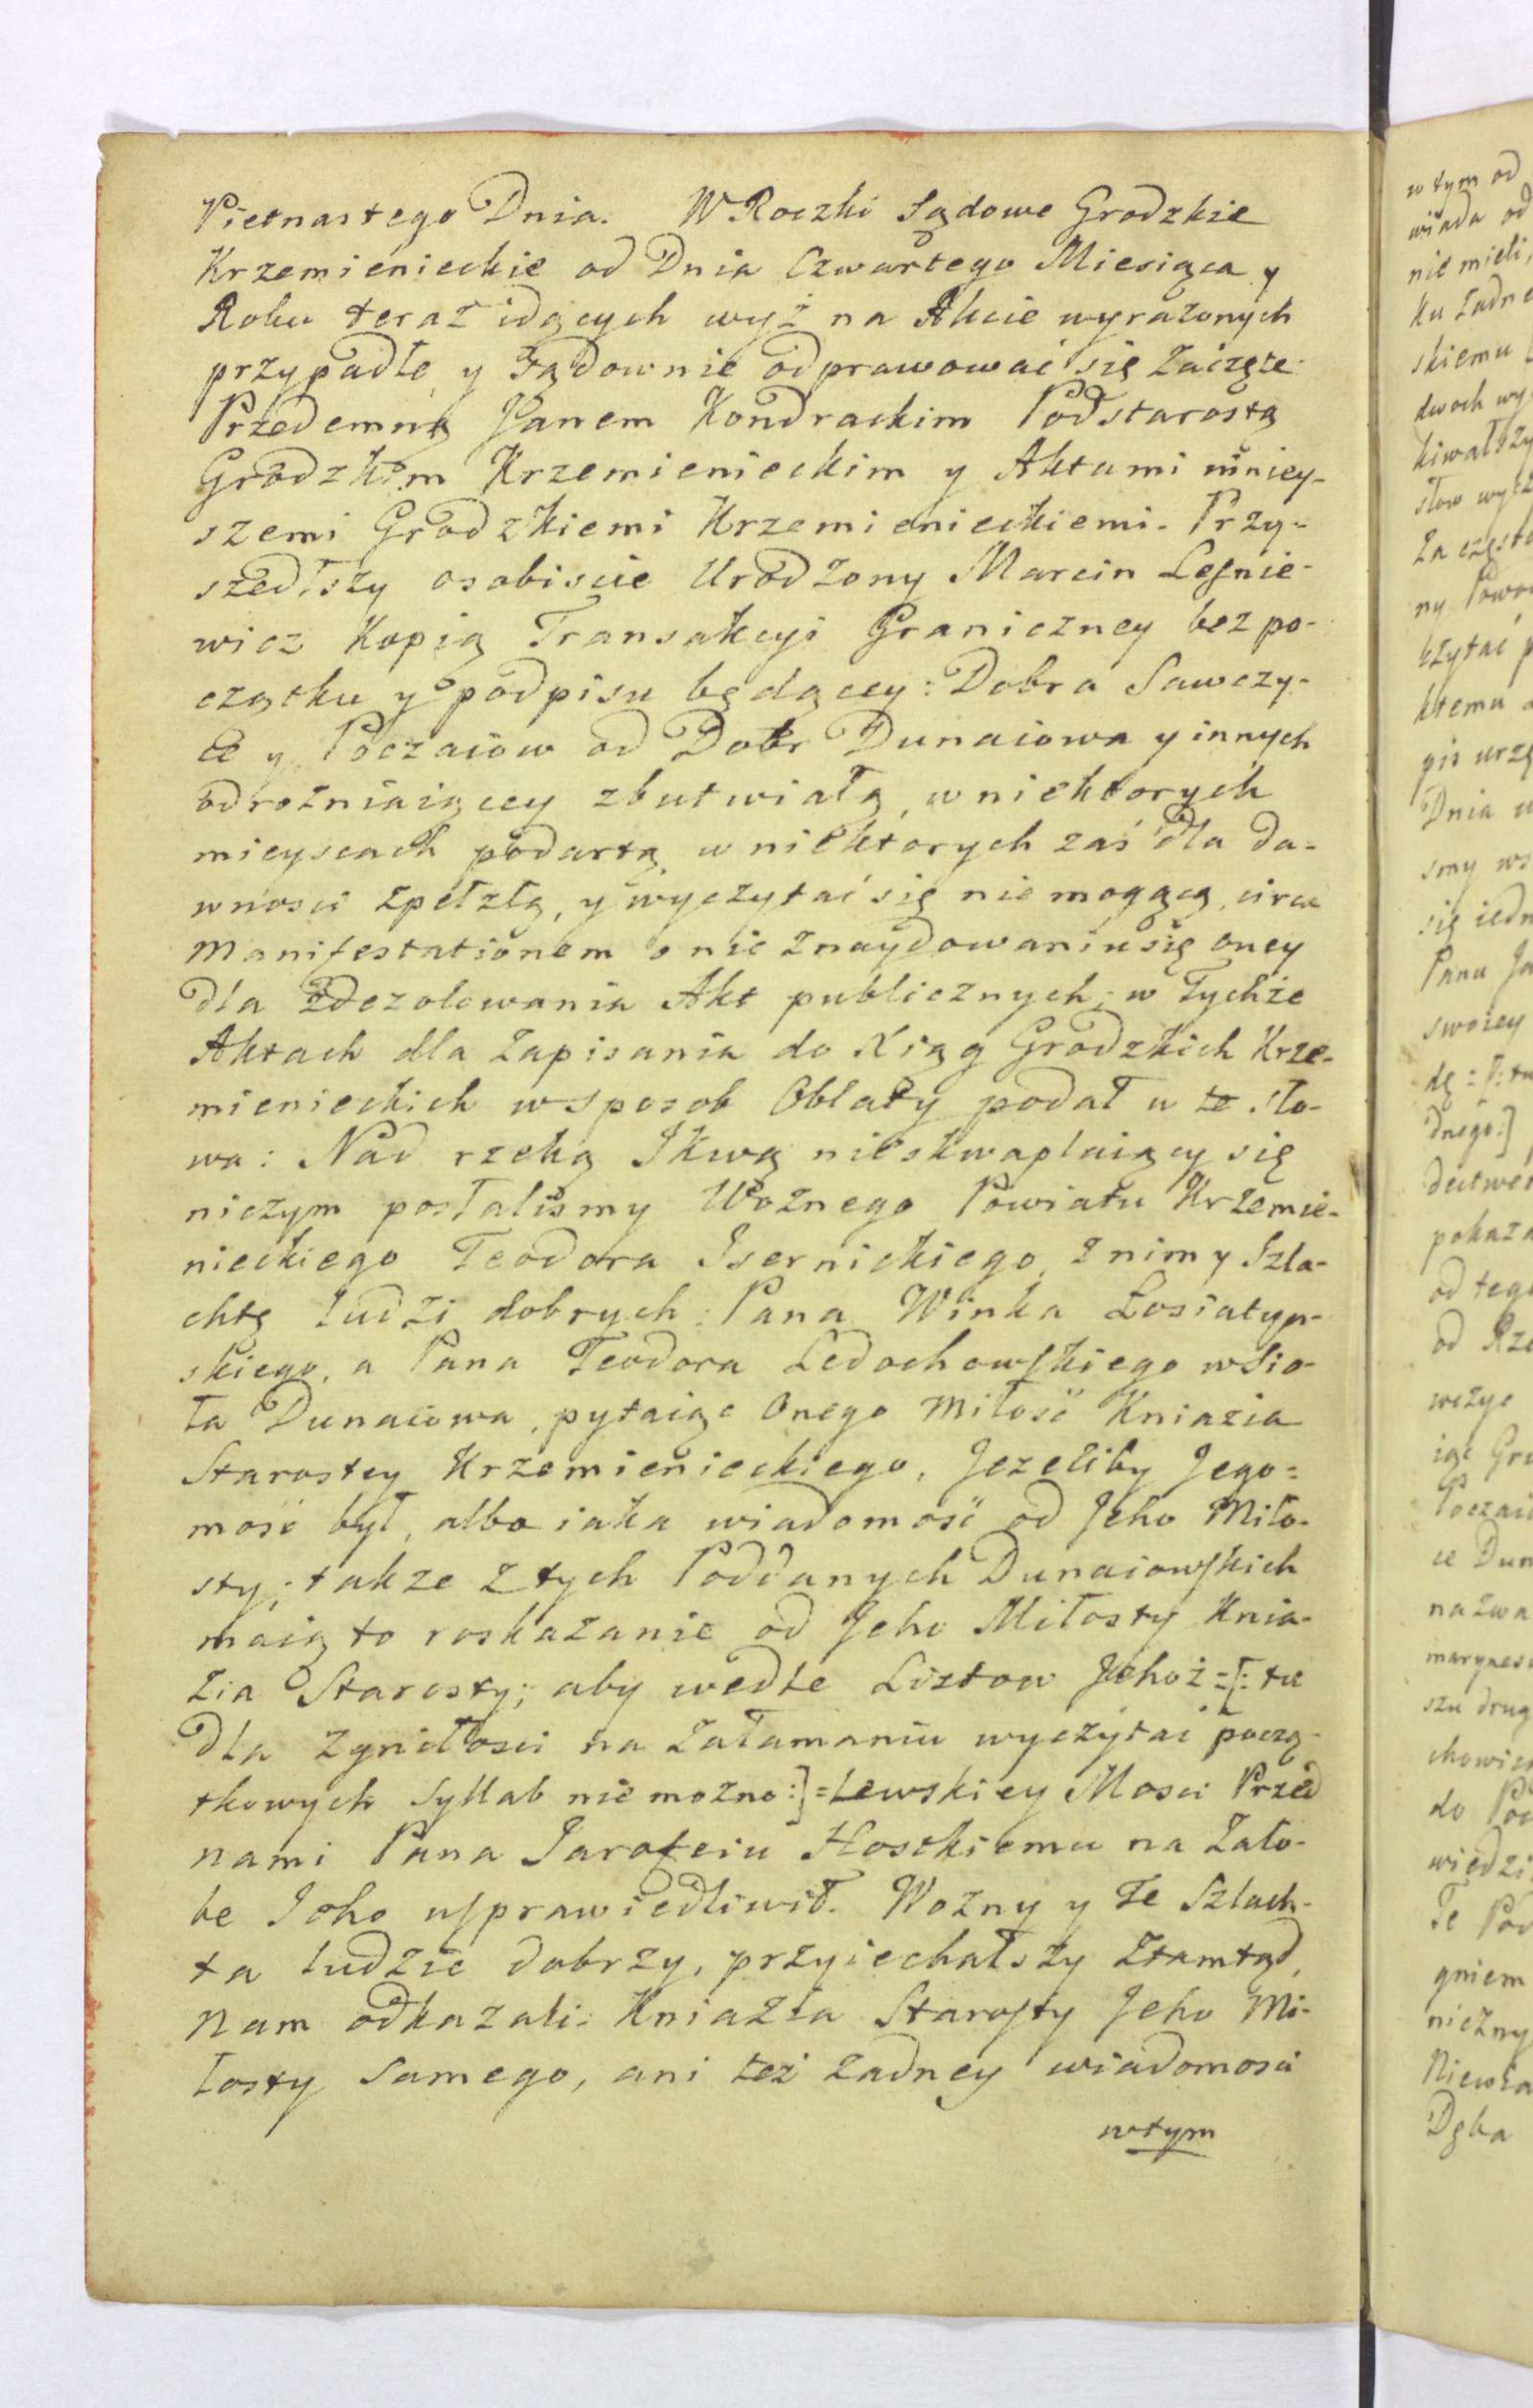 Pietnastego Dnia. W Roczki Sądowe Grodzkie
Krzemienieckie od Dnia Czwartego Miesiąca y
Roku teraz idących wyż na Akcie wyrażonych
przypadłe y Sądownie odprawować się zaczęte.
Przedemną Janem Kondrackim Podstarostą
Grodzkim Krzemienieckim y Aktami niniey-
szemi Grodzkiemi Krzemienieckiemi. Przy-
szedłszy osobiscie Urodzony Marcin Leſnie-
wicz Kopią Transakcyi Graniczney bez po-
czątku y podpisu będącey: Dobra Sawczy-
ce y Poczaiow od Dobr Dunaiowa y innych
odrożniaiącey zbutwiałą, w niektorych
mieyscach podartą, w niektorych zaś dla da-
wnosci zpełzłą, y wyczytać się nie mogącą, circa
Manifestationem o nie znaydowaniu się oney
dla zdezolowania Akt publicznych; w Tychże
Aktach dla zapisania do Xiąg Grodzkich Krze-
mienieckich wsposob Oblaty podał w te sło-
wa: Nad rzeką Ikwą nieskwaplaiący się
niczym posłalismy Woznego Powiatu Krzemie-
nieckiego Teodora Isernickiego, z nim y Szla-
chtę ludzi dobrych: Pana Winka Łosiatyn-
skiego, a Pana Teodora Ledochowſkiego w Sio-
ła Dunaiowa, pytaiąc Onego Miłość Kniazia
Starostey Krzemienieckiego, Jezeliby Jego=
mość był, albo iaka wiadomość od Jeho Miło-
sty; takze z tych Poddanych Dunaiowſkich
maią to roskazanie od Jeho Miłosty Knia-
zia Starosty; aby wedle Listow Jehoż=[: tu
dla zgniłosci na załamaniu wyczytać począ-
tkowych Syllab nie można:]=lewskiey Mosci Przed
nami Pana Jarofeiu Hostkiemu na Zało-
be Joho uſprawiedliwił. Wozny y Te Szlach-
ta ludzie dobrzy, przyiechałszy ztamtąd,
nam odkazali: Kniazia Staroſty Jeho Mi-
łosty Samego, ani też żadney wiadomosci
wtym
w tym od
wiada od
nie mieli,
ku żadne
skiemu
dwoch wy
kiwałszy
słow wycz
za częst
ny Powo
czytać p
ktemu
pis urzę
Dnia w
smy ws
się iedn
Panu Ja
swoiey
dę=[: tu
dnego:]
pokaza
od tego
od Rze
iąc Gra
Poczai
ce Dun
nazwa
szu drug
chowics
do Poc
wiedzi
Te Pod
gniem
niczny
Niewia
Dęba